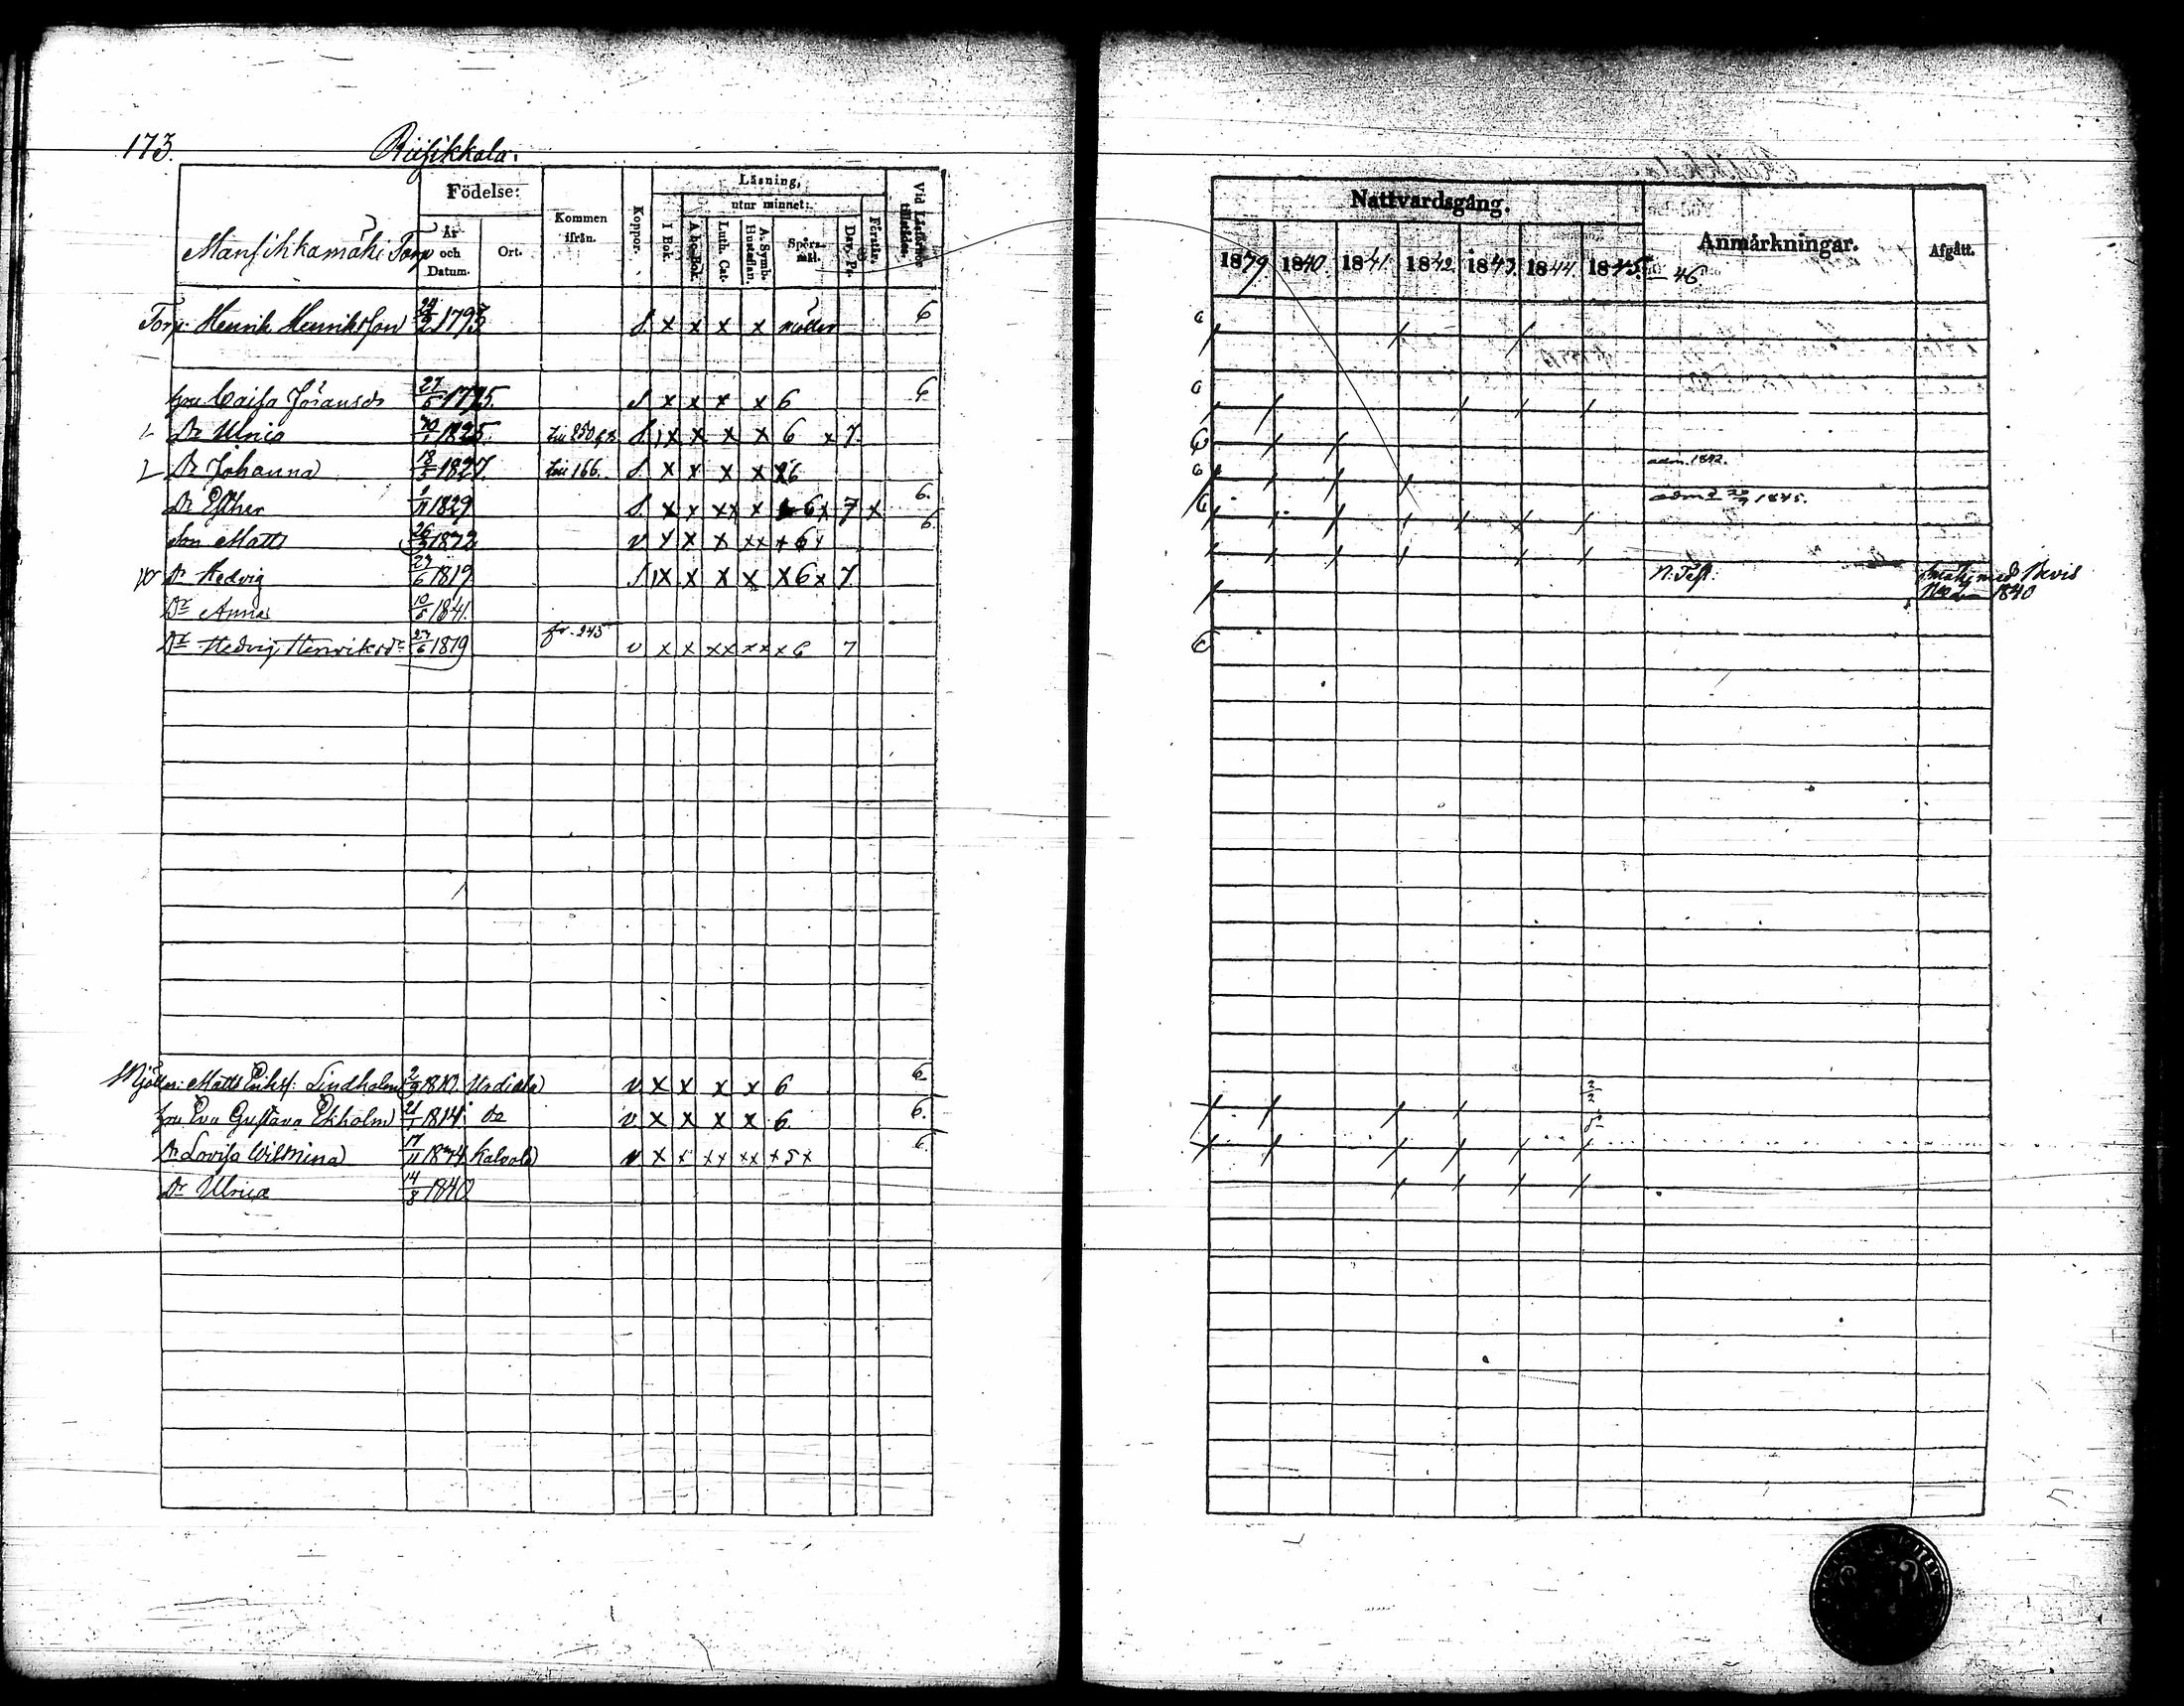 173. Riisikkala.
Mansikkamäki Torp
Födelse: År och Datum. Ort.
Kommen ifrån.
Koppor.
Läsning, utur minnet:
I Bok. A b c Bok. Luth. Cat. A. Symb. Hustaflan. Spörs- mål. Dav. Ps. Förstår.
Vid Läsförhör tillstädes.
Torp. Henrik Henriksson 24/2 1793 S x x x x 6
hru Caisa Göransdr 27/5 1775. S x x x x 6 6
Dr Ulrica 1825. S x x x x 6 x 7.
Dr Johanna 18/3 1827. 166. S x x x x 6
Dr Esther 1829 S x x xx x 6 x 7 x 6.
Son Matts v x x x xx x 6 x 6
Dr Hedvig 27/6 1819 S x x x x x 6 x 7.
Dr Anna 10/5 1841.
Dr Hedvig Henriksdr 27/6 1819 fr. 245 v x x xx xx x 6 7
Mjöln: Matts Eriks: Lindholm 1810 Urdiala v x x x x 6 6
hru Eva Gustava Ekholm 21/1 1814 Do v x x x x 6. 6.
Dr Lovisa Wilhlmina 17/11 1834 Kalvola v x x xx xx x 5 x 6
Dr Ulrica 14/8 1840
Nattvardsgång.
1839. 1840. 1841. 1842. 1843. 1844. 1845. - 46
Anmärkningar.
Afgått.
adm. 1842.
1845.
N: Test:
med Bevis
1840